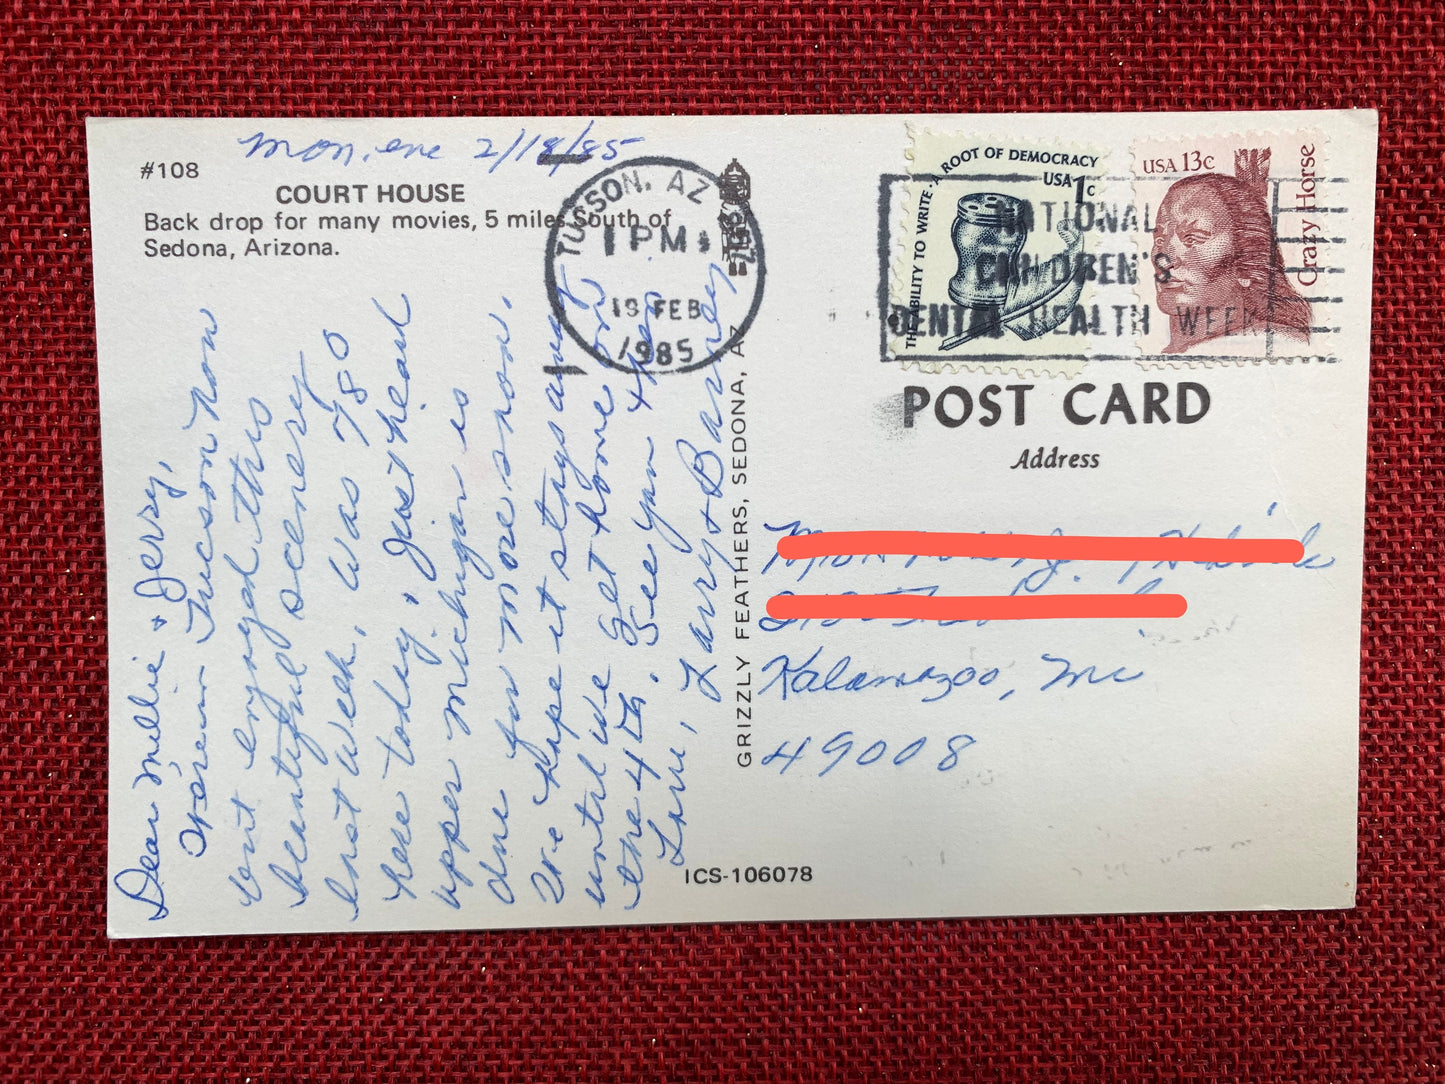 Mon. eve 2/18/85
#108
COURT HOUSE
Back drop for many movies, 5 miles South of
Sedona, Arizona.
Dear Millie & Jerry,
We're in Tucson now
but enjoyed this
beautiful scenery
last week. Was 78°
here today. Just heard
upper Michigan is
due for more snow.
We hope it stays away
until we get home on
the 4th. See you then.
Love, Larry & Barney
TUCSON, AZ
1 PM
19 FEB
1985
GRIZZLY FEATHERS, SEDONA, AZ
ICS-106078
THE ABILITY TO WRITE · A ROOT OF DEMOCRACY
USA 1c
USA 13c
Crazy Horse
NATIONAL
CHILDREN'S
DENTAL HEALTH WEEK
POST CARD
Address
Kalamazoo, Mi
49008